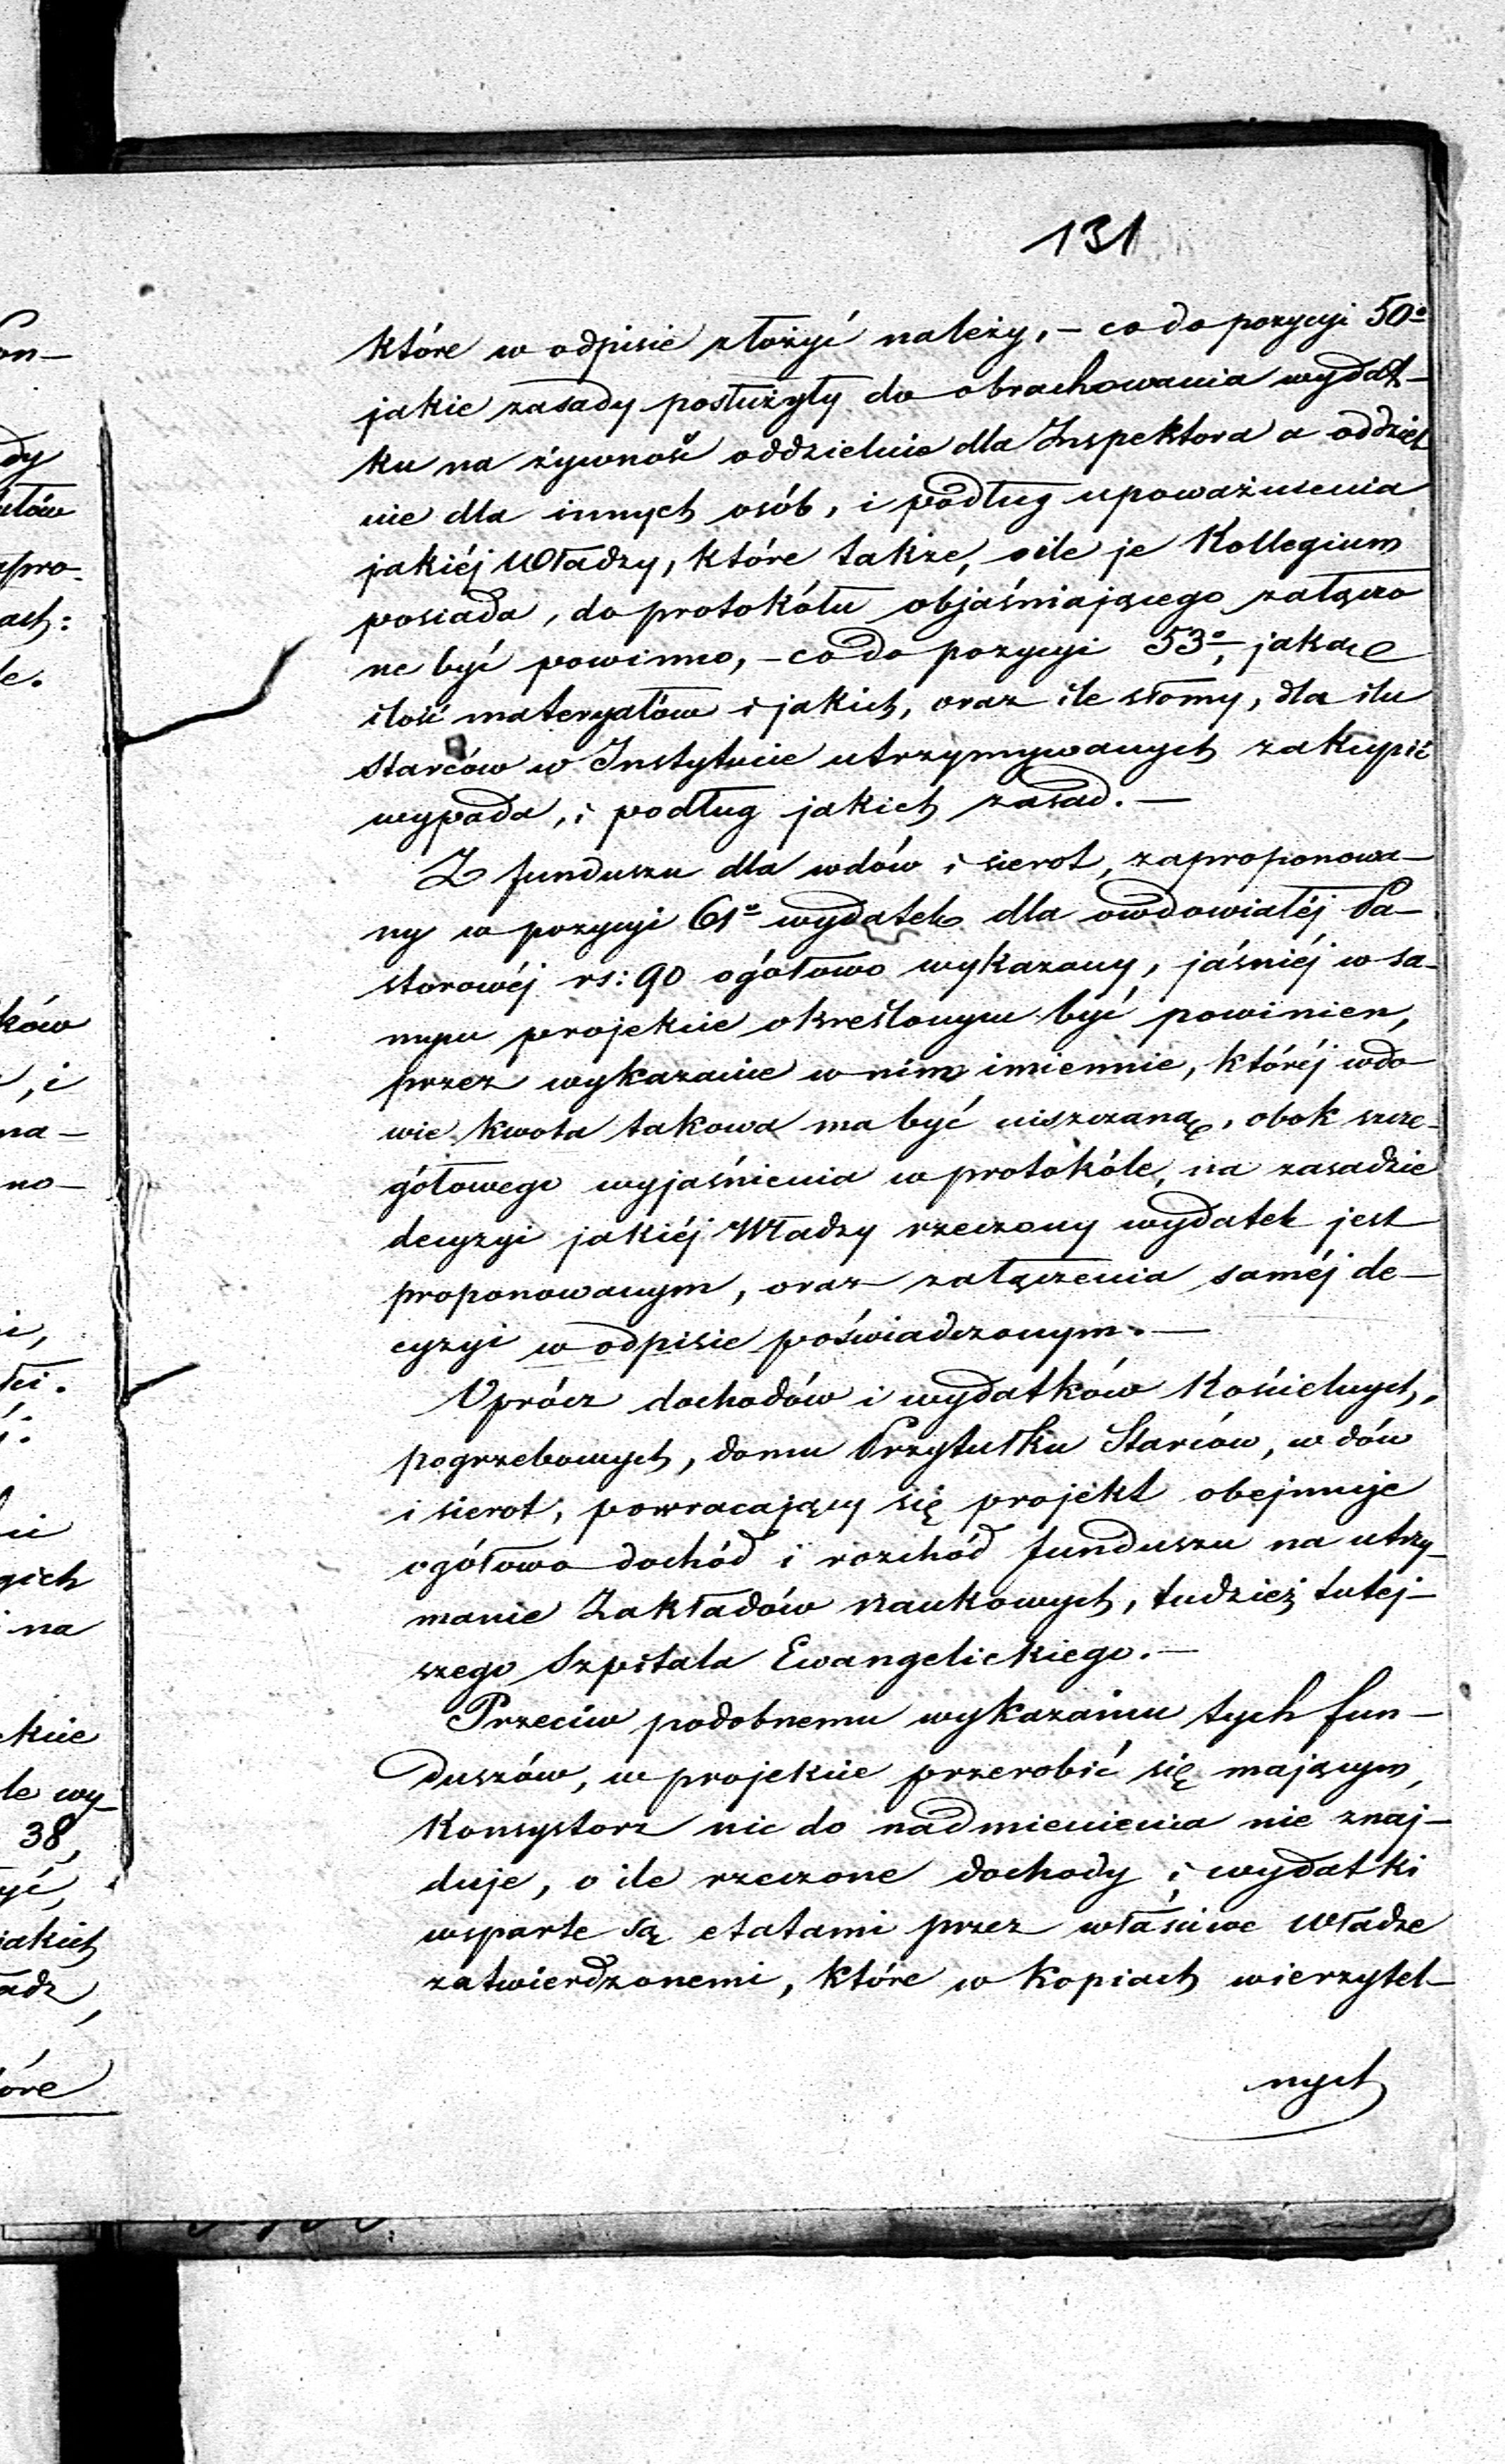 131
które w odpisie złożyć należy, – co do pozycyi 50º
jakie zasady posłużyły do obrachowania wydat–
ku na żywność oddzielnie dla Inspektora a oddziel
nie dla innych osób, i podług upoważnienia
jakiéj Władzy, które także, o ile je Kollegium
posiada, do protokółu objaśniającego załączo
ne być powinno, – co do pozycyi 53º, jaka
ilość materyałów i jakich, oraz ile słomy, dla ilu
Starców w Instytucie utrzymywanych zakupić
wypada, i podług jakich zasad. –
Z funduszu dla wdów i sierot, zaproponowa–
ny w pozycyi 61º wydatek dla owdowiałéj Pa–
storowéj rs: 90 ogółowo wykazany, jaśniéj w sa–
mym projekcie określonym być powinien,
przez wykazanie w nim imiennie, któréj wdo–
wie kwota takowa ma być uiszczaną, obok szcze–
gółowego wyjaśnienia w protokóle, na zasadzie
decyzyi jakiéj Władzy rzeczony wydatek jest
proponowanym, oraz załączenia saméj de–
cyzyi w odpisie poświadczonym. –
Oprócz dochodów i wydatków Kościelnych,
pogrzebowych, domu Przytułku Starców, wdów
i sierot, powracający się projekt obejmuje
ogółowo dochód i rozchód funduszu na utrzy–
manie Zakładów naukowych, tudzież tutej–
szego Szpitala Ewangelickiego. –
Przeciw podobnemu wykazaniu tych fun–
duszów, w projekcie przerobić się mającym,
Konsystorz nic do nadmienienia nie znaj–
duje, o ile rzeczone dochody i wydatki
wsparte są etatami przez właściwe Władze
zatwierdzonemi, które w Kopiach wierzytel–
nych